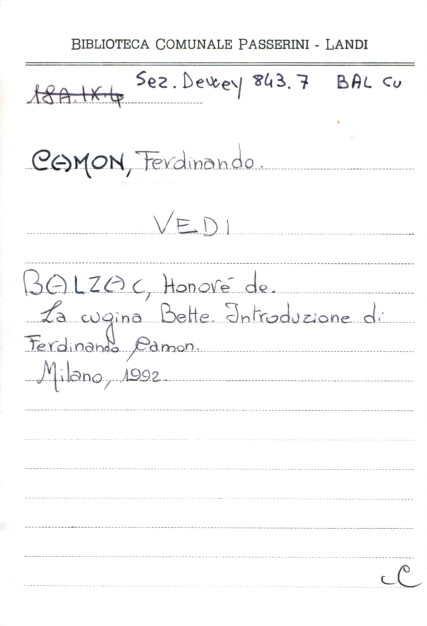 BIBLIOTECA COMUNALE PASSERINI - LANDI
18A.IX.4 Sez. Dewey 843.7 BAL Cu
CAMON, Ferdinando.
VEDI
BALZAC, Honoré de.
La cugina Bette. Introduzione di
Ferdinando Camon.
Milano, 1992.
C